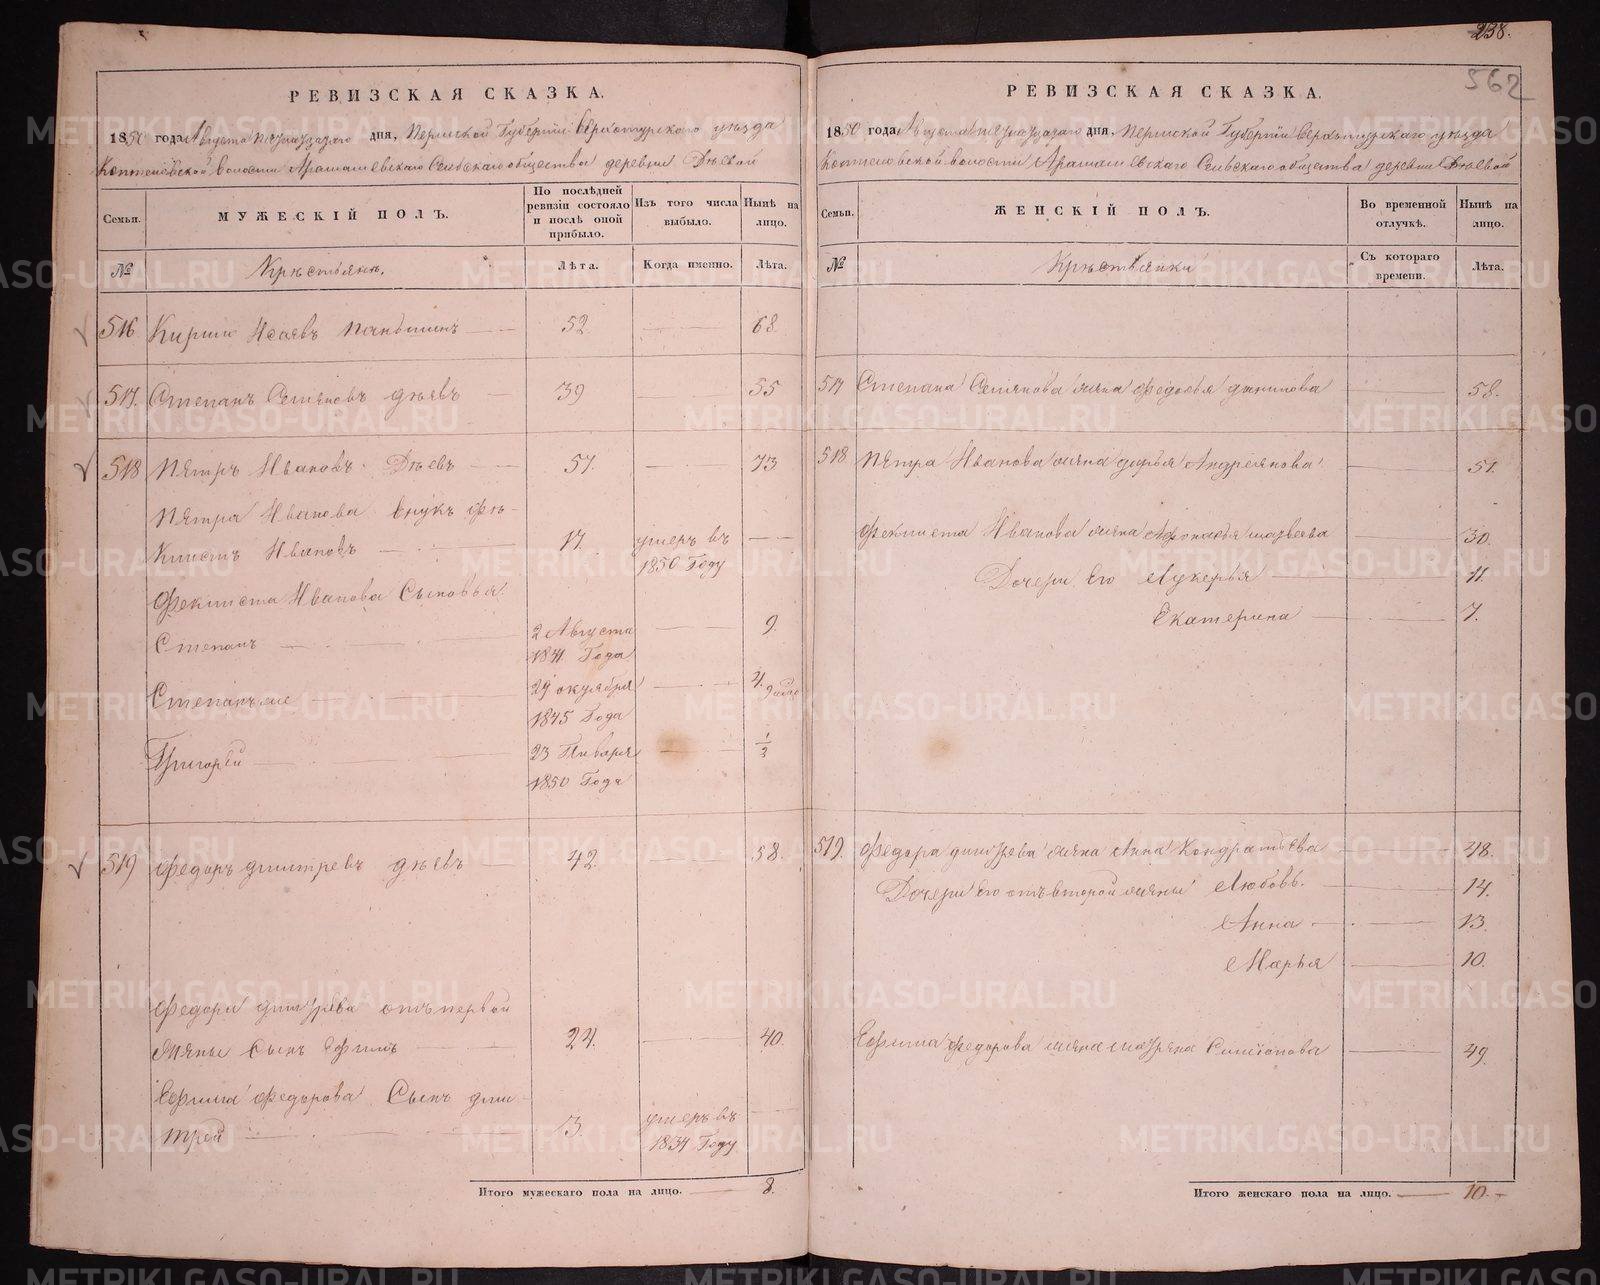 238.
562
РЕВИЗСКАЯ СКАЗКА.
1850 года Августа дня, Пермской Губернии Верхотурскаго уѣзда
волости Арамашевскаго Сельскаго общества деревни Дѣевой
Семьи.
МУЖЕСКІЙ ПОЛЪ.
По послѣдней ревизіи состояло и послѣ оной прибыло.
Изъ того числа выбыло.
Нынѣ на лицо.
№
Крестьяне.
Лѣта.
Когда именно.
Лѣта.
516 Исаевъ Паньшинъ 52 68
517. Степанъ Семеновъ Дѣевъ 39 55
518 Петръ Ивановъ Дѣевъ 57. 73
Петра Иванова внукъ Фе-
клистъ Ивановъ 17. умеръ въ
1850 Году
Феклиста Иванова Сыновья
Степанъ 2 Августа 9.
1841 Года
Степанъ же 29 октября 4. 9
1845 Года
Григорей 23 Января ½
1850 Года
519 Федоръ Дмитревъ Дѣевъ 42. 58.
Федора Дмитрева отъ первой
жены Сынъ Ефимъ 24. 40.
Ефима Федорова Сынъ Дми
трей 3. умеръ въ
1834 Году
Итого мужескаго пола на лицо. 8.
РЕВИЗСКАЯ СКАЗКА.
1850 года Августа дня, Пермской Губерніи Верхотурскаго уѣзда
волости Арамашевскаго Сельскаго общества деревни Дѣевой
Семьи.
ЖЕНСКІЙ ПОЛЪ.
Во временной отлучкѣ.
Нынѣ на лицо.
№
Крестьянки
Съ котораго времени.
Лѣта.
517 Степана Семенова жена Федосья Данилова 58.
518. Петра Иванова жена Дарья Андреянова 51.
Феклиста Иванова жена Афонасья Матвеева 30.
Дочери Его Лукерья 11.
Екатерина 7.
519. Федора Дмитрева жена Анна Кондратьева 48.
Дочери Его отъ второй жены Любовь. 14.
Анна 13.
Марья 10.
Ефима Федорова жена Матрена Симіонова 49.
Итого женскаго пола на лицо. 10.